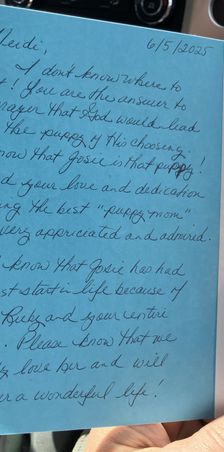 6/5/2025
eidi,
I don't know where to
t! You are the answer to
rayer that God would lead
the puppy of His choosing.
now that Josie is that puppy!
d your love and dedication
ng the best "puppy mom"
very appriciated and admired.
know that Josie has had
st start in life because of
Ruby and your entire
. Please know that we
ly love her and will
er a wonderful life!